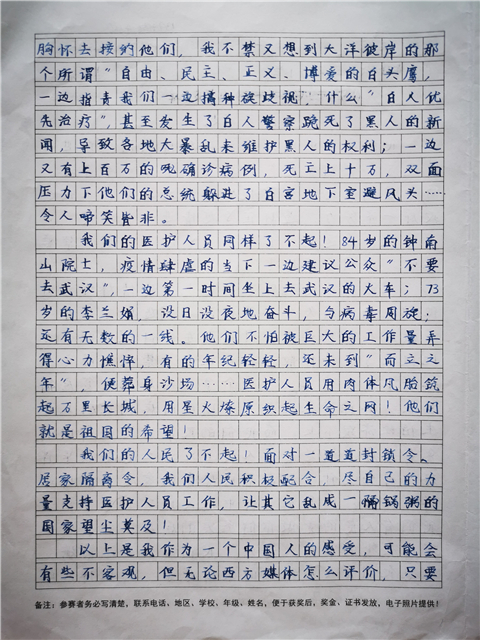 胸怀去接纳他们，我不禁又想到大洋彼岸的那
个所谓“自由、民主、正义、博爱的白头鹰，
一边指责我们一边搞种族歧视，什么“白人优
先治疗”，甚至发生了白人警察跪死了黑人的新
闻，导致各地大暴乱来维护黑人的权利；一边
又有上百万的确诊病例，死亡上十万，双面
压力下他们的总统躲进了白宫地下室避风头……
令人啼笑皆非。
我们的医护人员同样了不起！84岁的钟南
山院士，疫情肆虐的当下一边建议公众“不要
去武汉”，一边第一时间坐上去武汉的火车；73
岁的李兰娟，没日没夜地奋斗，与病毒周旋；
还有无数的一线。他们不怕被巨大的工作量弄
得心力憔悴，有的年纪轻轻，还未到“而立之
年”，便葬身沙场……医护人员用肉体凡胎筑
起万里长城，用星火燎原织起生命之网！他们
就是祖国的希望！
我们的人民了不起！面对一道道封锁令、
居家隔离令，我们人民积极配合，尽自己的力
量支持医护人员工作，让其它乱成一桶锅粥的
国家望尘莫及！
以上是我作为一个中国人的感受，可能会
有些不客观，但无论西方媒体怎么评价，只要
备注：参赛者务必写清楚，联系电话、地区、学校、年级、姓名，便于获奖后，奖金、证书发放，电子照片提供！